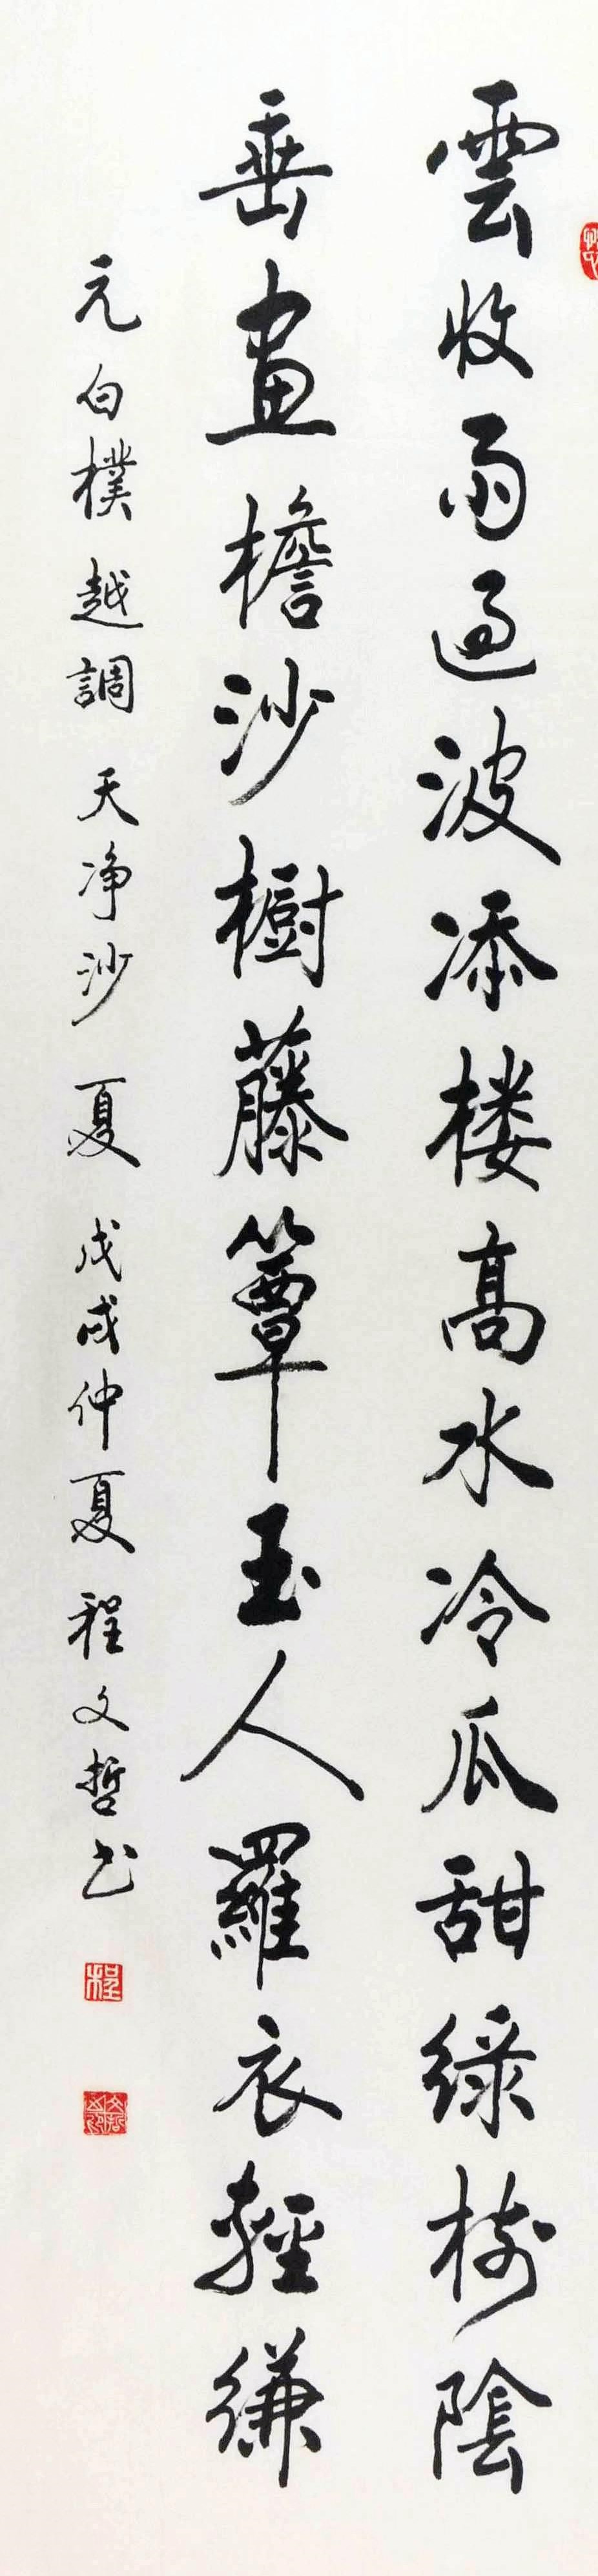 雲收雨過波添楼高水冷瓜甜綠樹陰
垂畫檐沙橱藤簟玉人羅衣輕縑
元白樸越調天净沙夏戊戌仲夏程文哲书
程